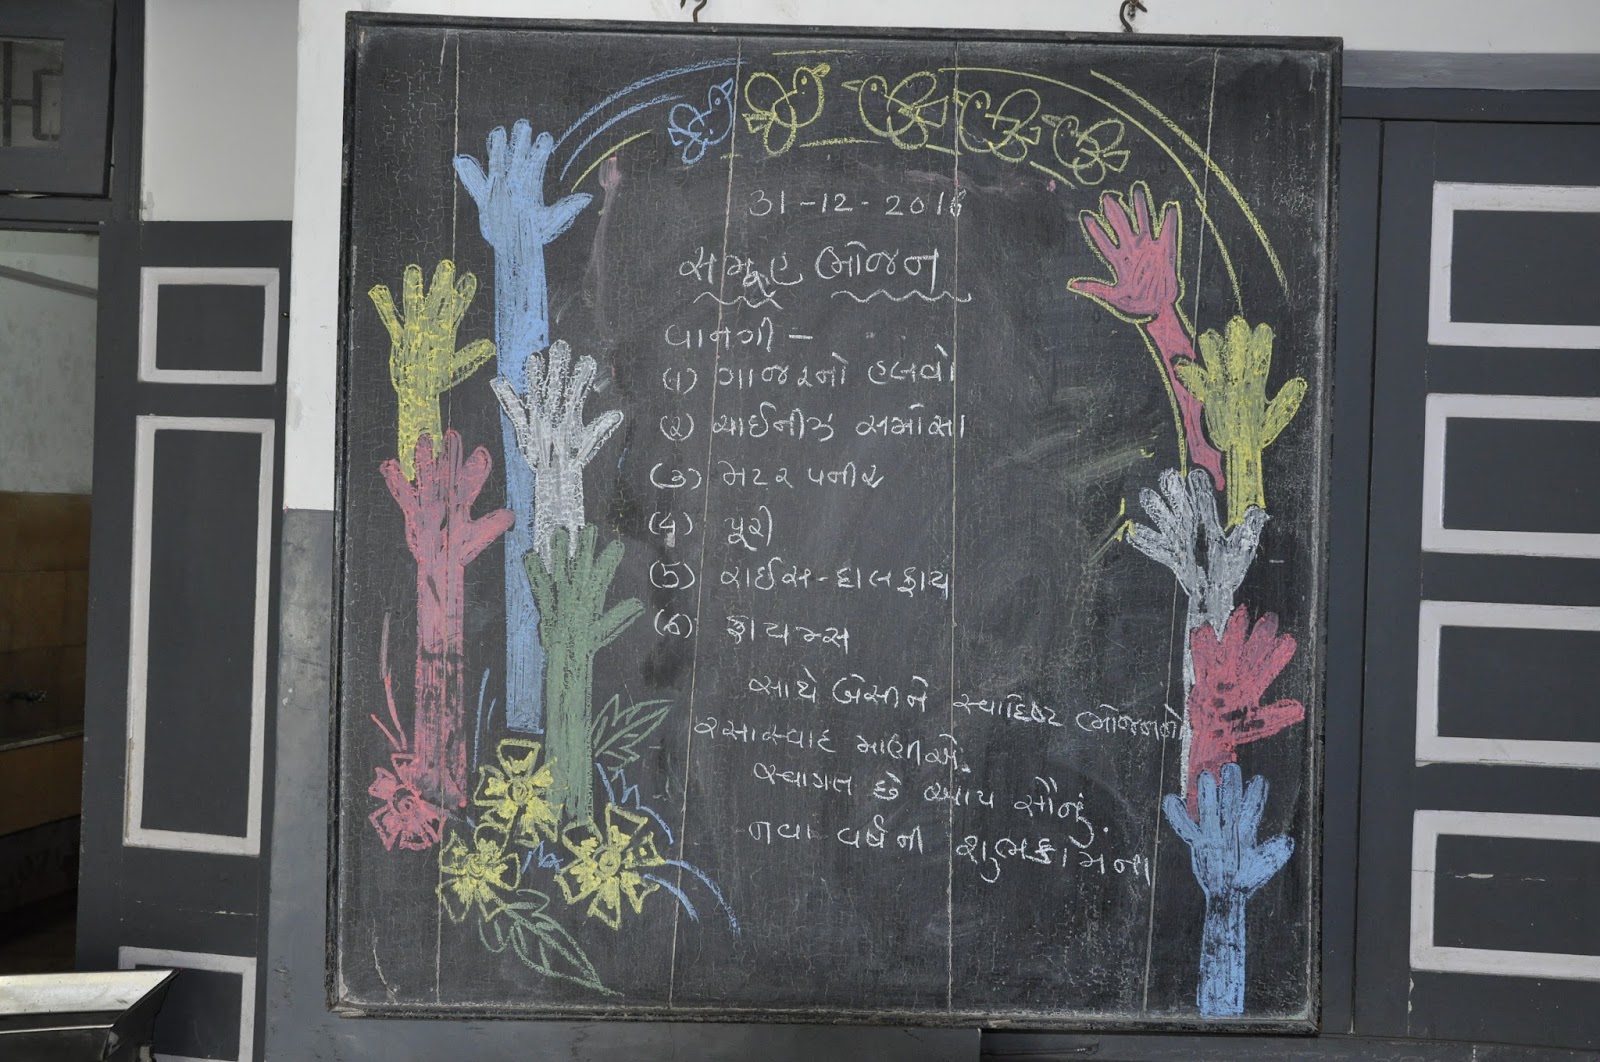 31-12-2016
સમૂહ ભોજન
વાનગી -
(૧) ગાજરનો હલવો
(૨) ચાઈનીઝ સમોસા
(૩) મટર પનીર
(૪) પૂરી
(5) રાઈસ-દાલ ફ્રાય
(૬) ફ્રાયમ્સ
સાથે બેસીને સ્વાદિષ્ટ ભોજનનો
રસાસ્વાદ માણીએ.
સ્વાગત છે આપ સૌનું.
નવા વર્ષની શુભકામના